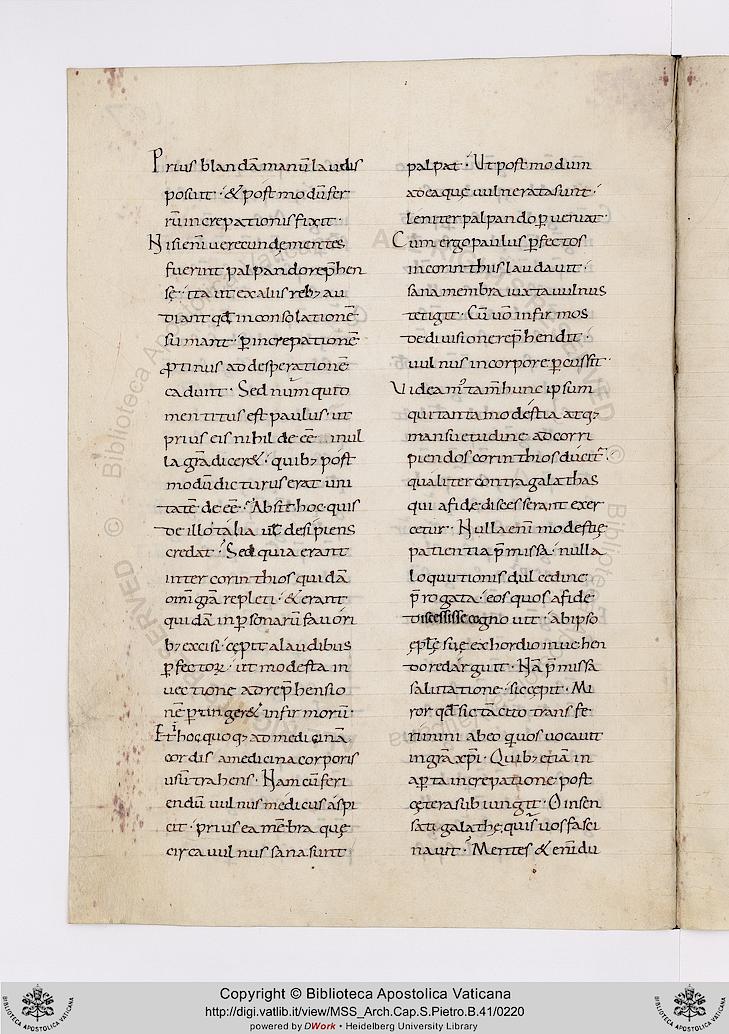 Prius blandā manū laudis
posuit · & post modū fer
rū increpationis fixit ·
Nisi enī uerecundę mentes
fuerint palpando rep̄hen
sę · ita ut ex aliis reb; au
diant qđ in consolationē
sumant · p̄ increpationē
ꝓtinus ad desperationē
cadunt · Sed num quid
mentitus est paulus ut
prius eis nihil deēē in ul
la gr̄a dicer& · quib; post
modū dicturus erat uni
tatē deēē · Absit hoc quis
de illo talia uł desipiens
credat · Sed quia erant
inter corinthios quidā
om̄i gr̄a repleti · & erant
quidā in p̱sonarū fauori
b; excisi · cępit a laudibus
p̱fectoꝝ · ut modesta in
uectione ad rep̄hensio
nē p̱tinger& infirmorū ·
Et hoc quoq; ad medicinā
cordis a medicina corporis
usū trahens · Nam cū feri
endū uulnus medicus aspi
cit · prius ea mēbra quę
circa uulnus sana sunt
palpat · Ut post modum
ad ea quę uulnerata sunt ·
leniter palpando p̱ueniat ·
Cum ergo paulus p̱fectos
in corinthiis laudauit ·
sana membra iuxta uulnus
tetigit · Cū uō infirmos
de diuisione rep̄hendit ·
uulnus in corpore p̱cussit ·
Videam᾽ tam̄ hunc ipsum
qui tanta modestia atq;
mansuetudine ad corri
piendos corinthios ducit᾽ ·
qualiter contra galathas
qui a fide discesserant exer
cetur · Nulla enī modestię
patientia p̄missa · nulla
loquutionis dulcedine
p̄rogata · eos quos a fide
discessisse cognouit · ab ipso
ępłę suę exhordio inuehen
do redarguit · Nā p̄missa
salutatione · sic cępit · Mi
ror qđ sic tā cito transfe
rimini ab eo qui uos uocauit
in gr̄a xp̄i · Quib; etiā in
ap̱ta increpatione post
cętera subiungit · O insen
sati galathę, quis uos fasci
nauit · Mentes & enī du
Copyright © Biblioteca Apostolica Vaticana
http://digi.vatlib.it/view/MSS_Arch.Cap.S.Pietro.B.41/0220
powered by DWork • Heidelberg University Library